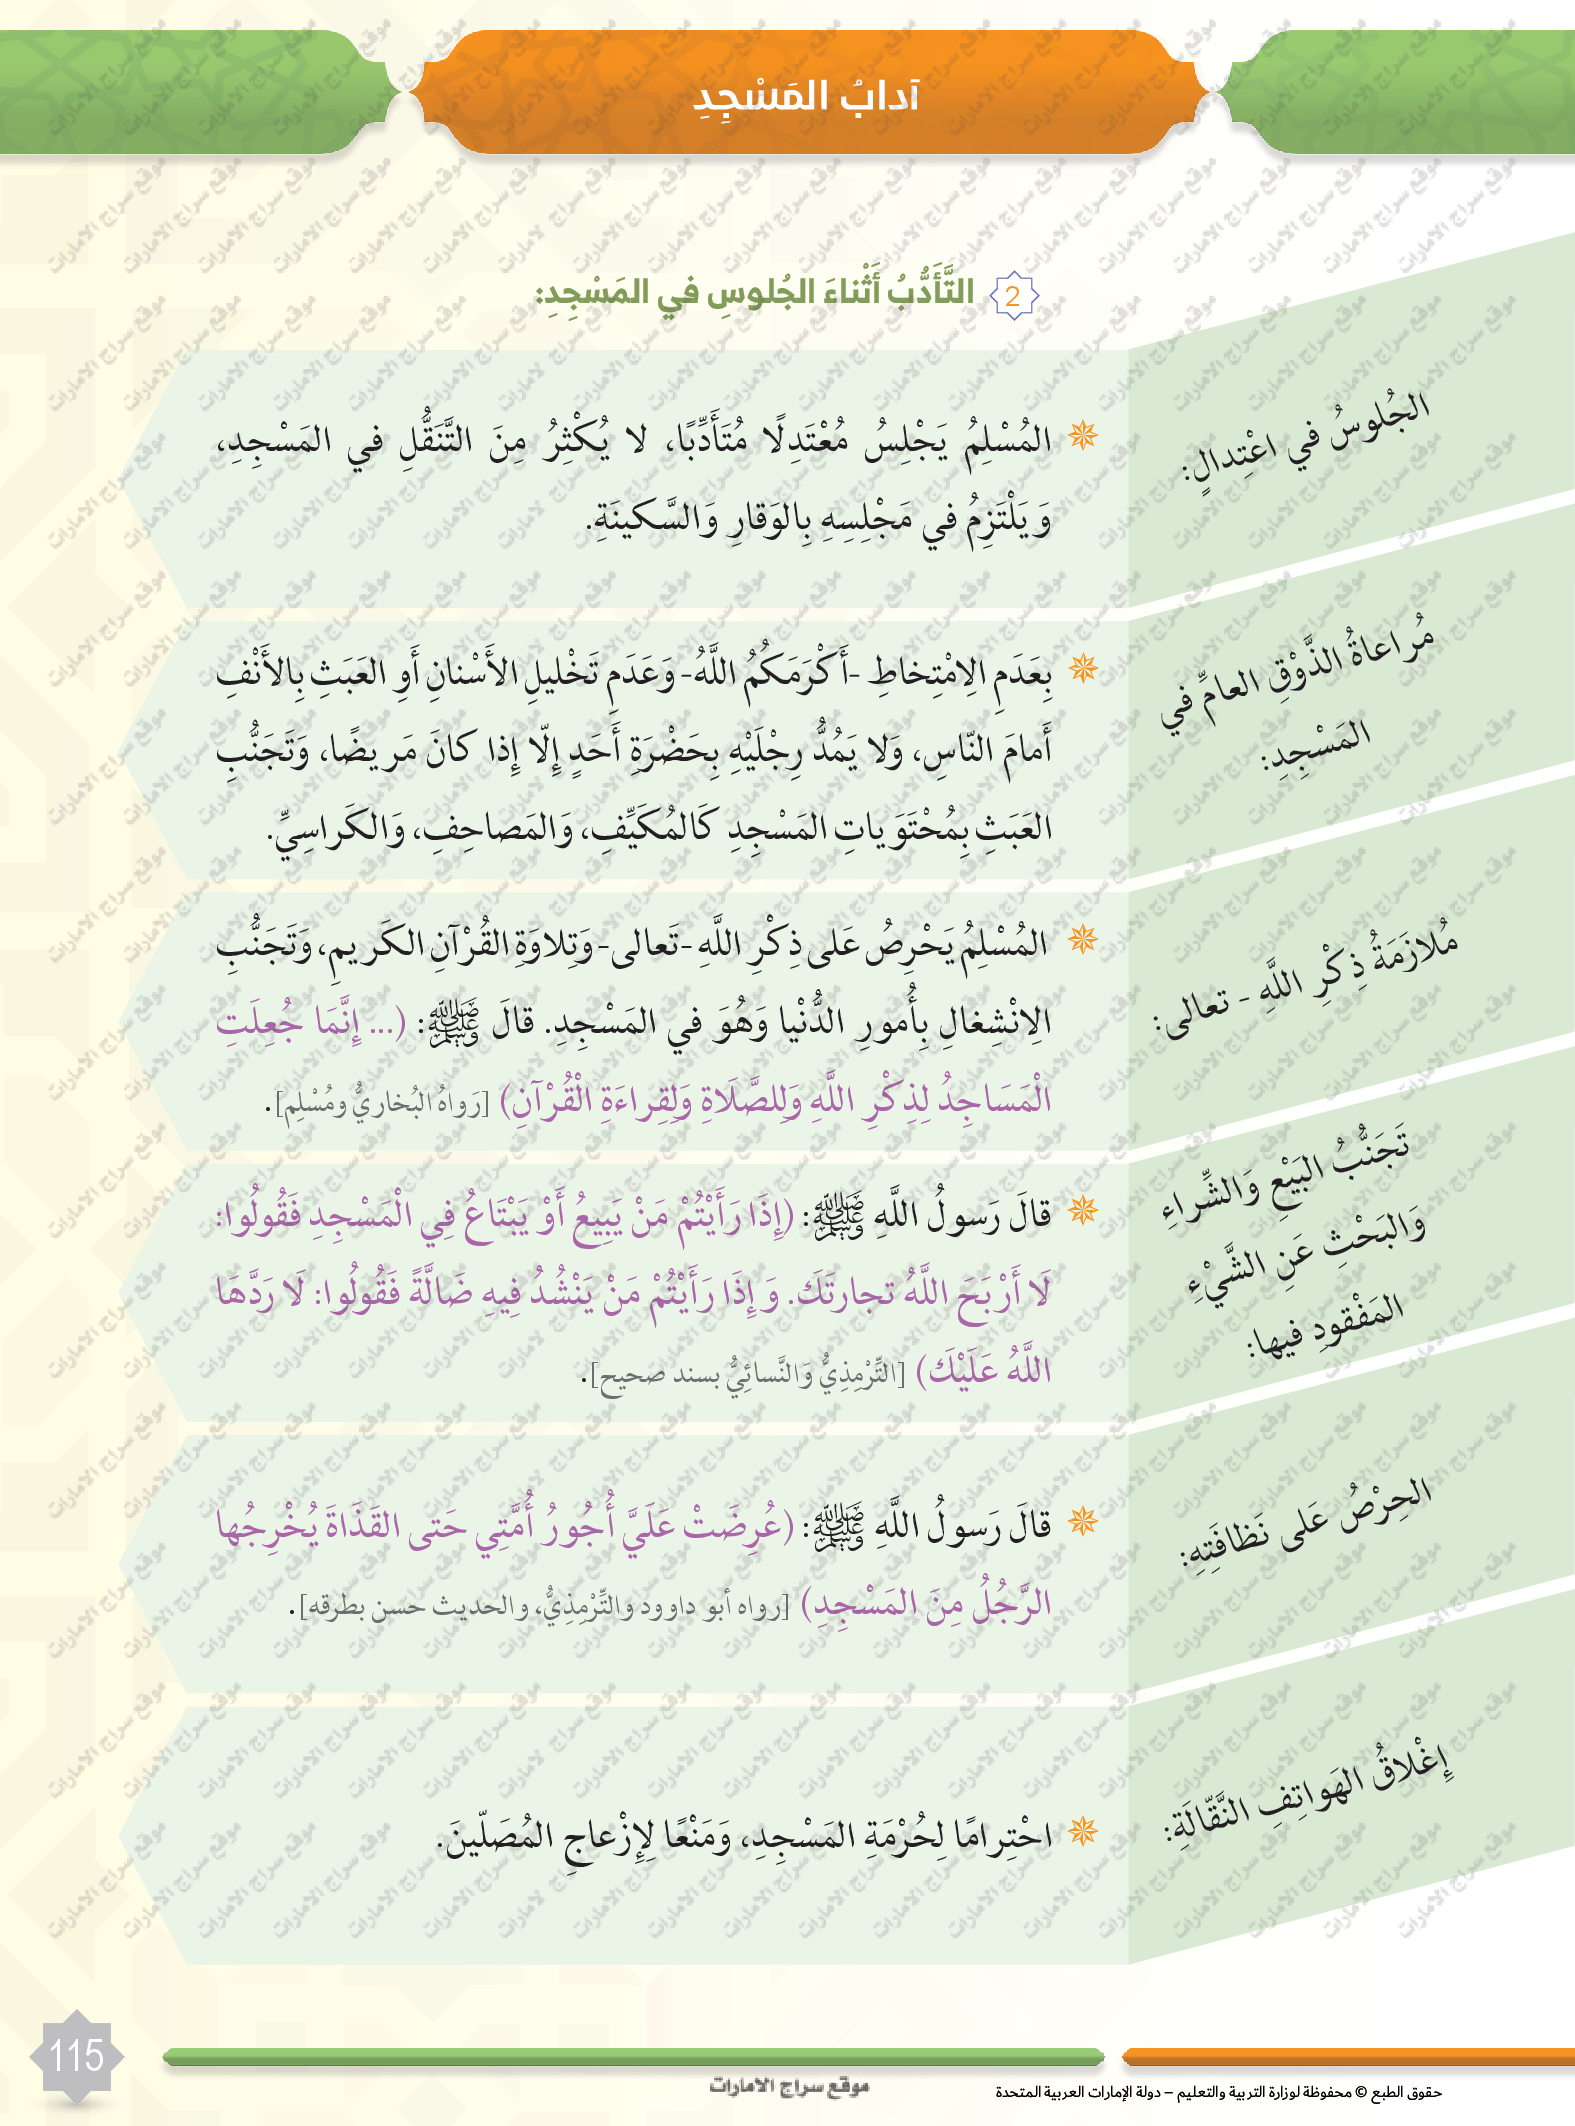 آدابُ المَسْجِدِ
2 التَّأَدُّبُ أَثْناءَ الجُلوسِ في المَسْجِدِ:
الجُلوسُ في اعْتِدالٍ:
المُسْلِمُ يَجْلِسُ مُعْتَدِلًا مُتَأَدِّبًا، لا يُكْثِرُ مِنَ التَّنَقُّلِ في المَسْجِدِ،
وَيَلْتَزِمُ في مَجْلِسِهِ بِالوَقارِ وَالسَّكينَةِ.
مُراعاةُ الذَّوْقِ العامِّ في
المَسْجِدِ:
بِعَدَمِ الِامْتِخاطِ -أَكْرَمَكُمُ اللَّهُ- وَعَدَمِ تَخْليلِ الأَسْنانِ أَوِ العَبَثِ بِالأَنْفِ
أَمامَ النّاسِ، وَلا يَمُدُّ رِجْلَيْهِ بِحَضْرَةِ أَحَدٍ إِلّا إِذا كانَ مَريضًا، وَتَجَنُّبِ
العَبَثِ بِمُحْتَوَياتِ المَسْجِدِ كَالمُكَيِّفِ، وَالمَصاحِفِ، وَالكَراسِيِّ.
مُلازَمَةُ ذِكْرِ اللَّهِ - تعالى:
المُسْلِمُ يَحْرِصُ عَلى ذِكْرِ اللَّهِ -تَعالى- وَتِلاوَةِ القُرْآنِ الكَريمِ، وَتَجَنُّبِ
الِانْشِغالِ بِأُمورِ الدُّنْيا وَهُوَ في المَسْجِدِ. قالَ ﷺ: (... إِنَّمَا جُعِلَتِ
الْمَسَاجِدُ لِذِكْرِ اللَّهِ وَلِلصَّلَاةِ وَلِقِراءَةِ الْقُرْآنِ) [رَواهُ البُخاريُّ ومُسْلِم].
تَجَنُّبُ البَيْعِ وَالشِّراءِ
وَالبَحْثِ عَنِ الشَّيْءِ
المَفْقودِ فيها:
قالَ رَسولُ اللَّهِ ﷺ: (إِذَا رَأَيْتُمْ مَنْ يَبِيعُ أَوْ يَبْتَاعُ فِي الْمَسْجِدِ فَقُولُوا:
لَا أَرْبَحَ اللَّهُ تجارتَكَ. وَإِذَا رَأَيْتُمْ مَنْ يَنْشُدُ فِيهِ ضَالَّةً فَقُولُوا: لَا رَدَّهَا
اللَّهُ عَلَيْكَ) [التِّرْمِذِيُّ وَالنَّسائِيُّ بسند صحيح].
الحِرْصُ عَلى نَظافَتِهِ:
قالَ رَسولُ اللَّهِ ﷺ: (عُرِضَتْ عَلَيَّ أُجُورُ أُمَّتِي حَتى القَذَاةَ يُخْرِجُها
الرَّجُلُ مِنَ المَسْجِدِ) [رواه أبو داوود والتِّرْمِذِيُّ، والحديث حسن بطرقه].
إِغْلاقُ الهَواتِفِ النَّقّالَةِ:
احْتِرامًا لِحُرْمَةِ المَسْجِدِ، وَمَنْعًا لِإِزْعاجِ المُصَلّينَ.
115
موقع سراج الامارات
حقوق الطبع © محفوظة لوزارة التربية والتعليم – دولة الإمارات العربية المتحدة